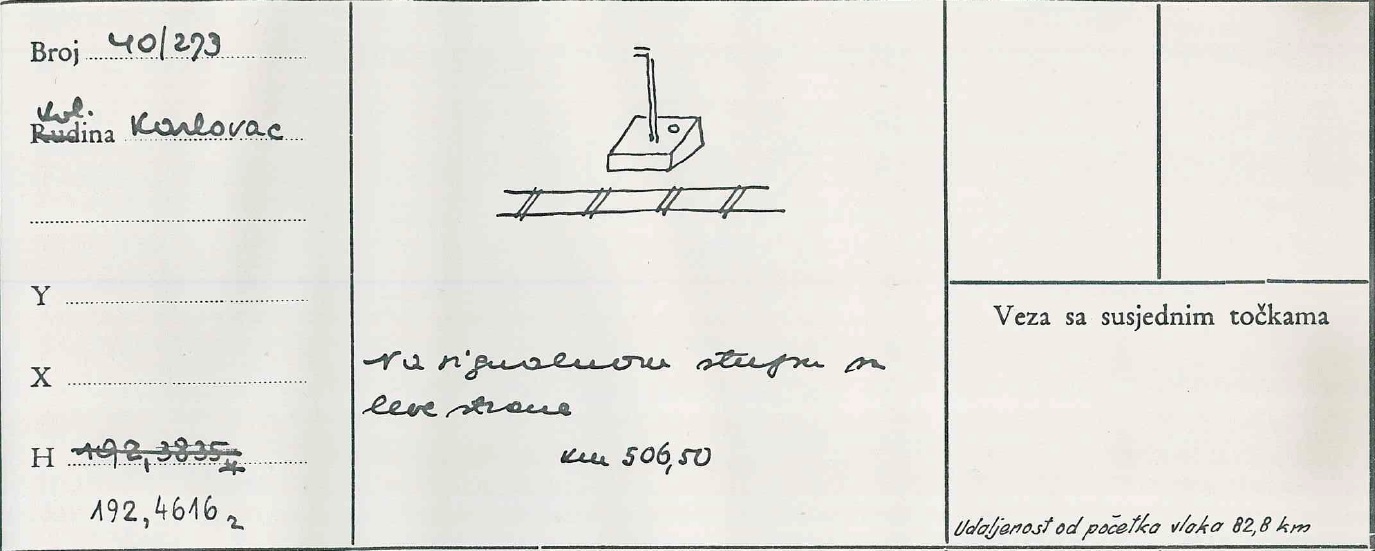 Broj 40/273
kol.
Rudina Karlovac
Y
X
H 192,3835
192,4616₂
Na signalnom stupu sa
leve strane
km 506,50
Veza sa susjednim točkama
Udaljenost od početka vlaka 82,8 km